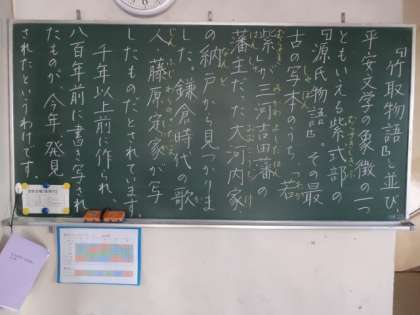 『竹取物語』と並び
平安文学の象徴の一つ
ともいえる紫式部の
『源氏物語』。その最
古の写本のうち、「若
紫」が三河吉田藩の
藩主だった大河内家
の納戸から見つかりま
した。鎌倉時代の歌
人・藤原定家が写
したものだとされています。
千年以上前に作られ、
八百年前に書き写され
たものが、今年発見
されたというわけです。